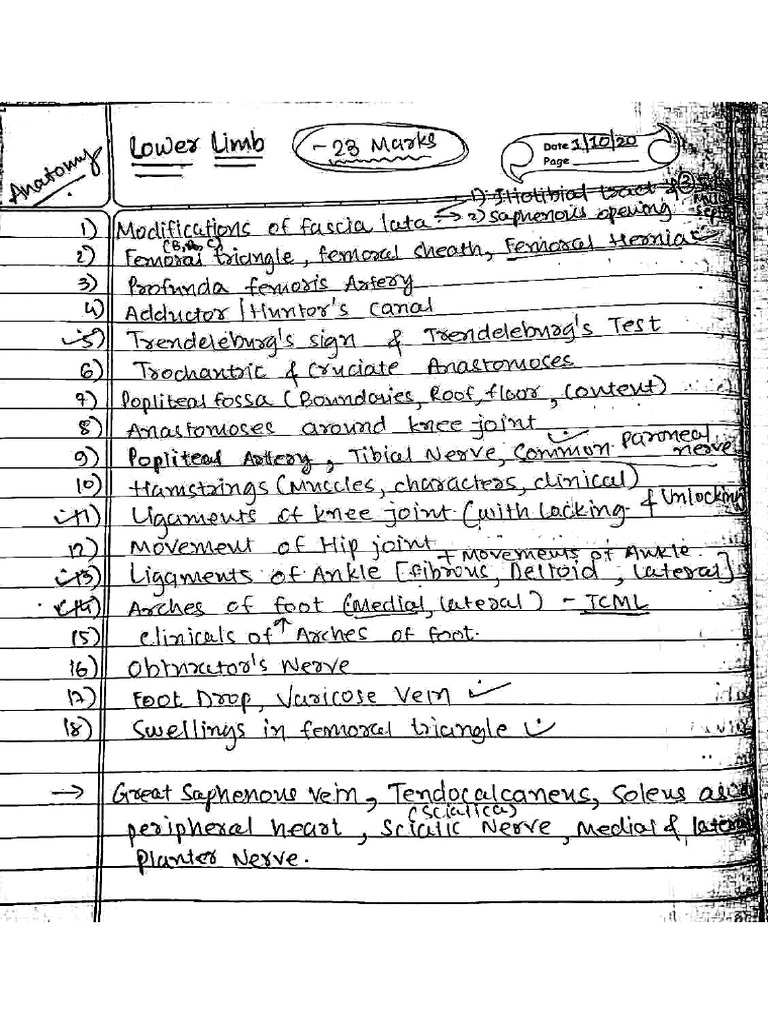 Anatomy
Lower Limb
- 23 Marks
Date 1/10/20
Page
1) Iliotibial tract &
1) Modifications of fascia lata → 2) Saphenous opening
(B, R, C)
2) Femoral triangle, femoral sheath, Femoral Hernia
3) Profunda femoris Artery
4) Adductor/Huntor's canal
5) Trendeleburg's sign & Trendeleburg's Test
6) Trochantric & Cruciate Anastomoses
7) Popliteal fossa (Boundaries, Roof, floor, Content)
8) Anastomoses around knee joint
9) Popliteal Artery, Tibial Nerve, Common Paroneal nerve
10) Hamstrings (Muscles, characters, clinical)
11) Ligaments of knee joint (with Locking & Unlocking
12) Movement of Hip joint + Movements of Ankle.
13) Ligaments of Ankle [fibrous, Deltoid, lateral]
14) Arches of foot (Medial, lateral) - TCML
15) Clinicals of ↑ Arches of foot.
16) Obtnrator's Nerve
17) Foot Drop, Varicose Vein
18) Swellings in femoral triangle
→ Great Saphenous vein, Tendocalcaneus, Soleus as
(Sciatica)
peripheral heart, Sciatic Nerve, Medial & lateral
Planter Nerve.